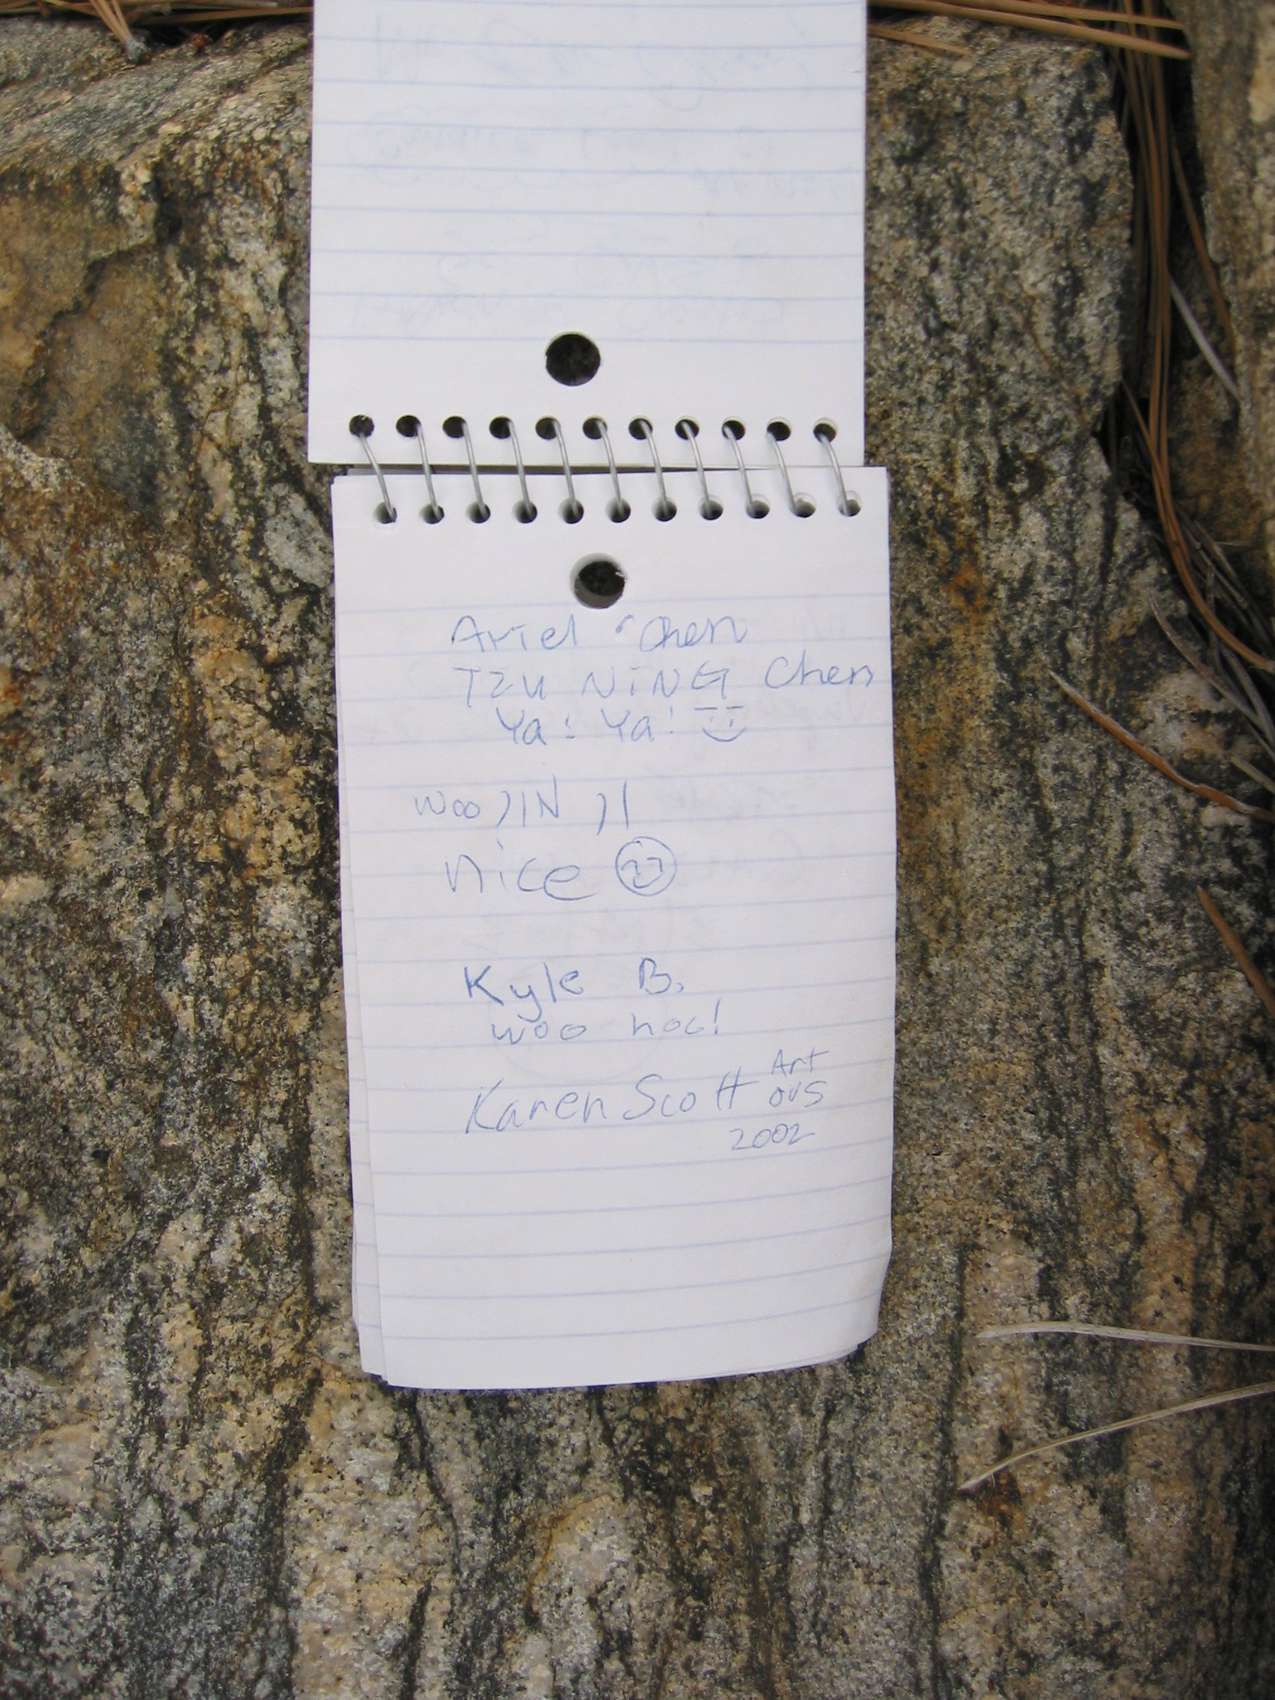 Ariel Chen
TZU NiNG Chen
Ya! Ya!
woo JIN JI
nice
Kyle B.
woo hoo!
Karen Scott Art
ovs
2002